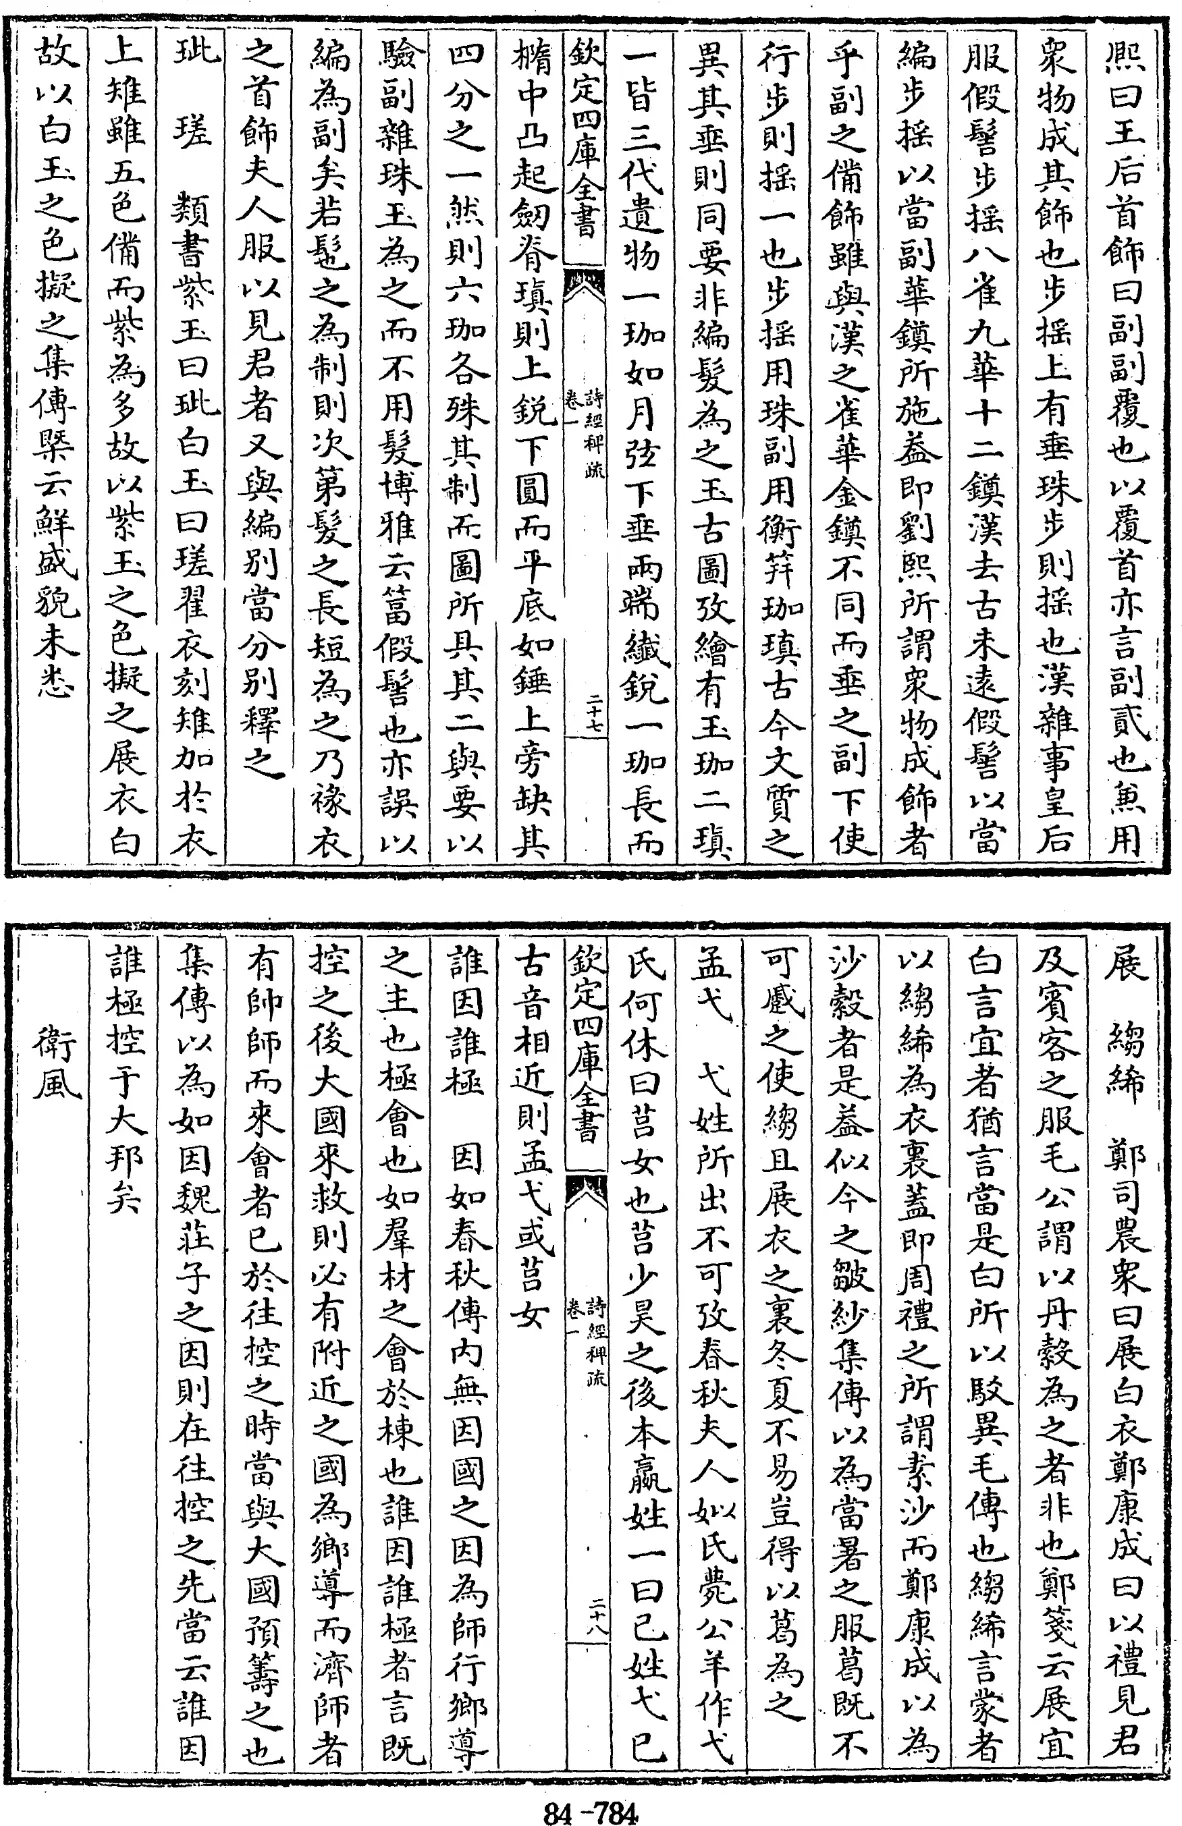 熙曰王后首飾曰副副覆也以覆首亦言副貳也兼用
衆物成其飾也步揺上有垂珠步則揺也漢雜事皇后
服假髻步揺八雀九華十二鐼漢去古未逺假髻以當
編步揺以當副華鐼所施葢即劉熙所謂衆物成飾者
乎副之備飾雖與漢之雀華金鐼不同而垂之副下使
行步則揺一也步揺用珠副用衡笄珈瑱古今文質之
異其垂則同要非編髪為之玉古圖攷繪有玉珈二瑱
一皆三代遺物一珈如月弦下垂兩端纎銳一珈長而
欽定四庫全書
詩經稗疏
卷一
二十七
橢中凸起劒脊瑱則上銳下圓而平底如錘上旁缺其
四分之一然則六珈各殊其制而圖所具其二與要以
驗副雜珠玉為之而不用髪博雅云䈂假髻也亦誤以
編為副矣若髢之為制則次第髪之長短為之乃褖衣
之首飾夫人服以見君者又與編别當分别釋之
玼　瑳　類書紫玉曰玼白玉曰瑳翟衣刻雉加於衣
上雉雖五色備而紫為多故以紫玉之色擬之展衣白
故以白玉之色擬之集傳槩云鮮盛貌未悉
展　縐絺　鄭司農衆曰展白衣鄭康成曰以禮見君
及賓客之服毛公謂以丹縠為之者非也鄭箋云展宜
白言宜者猶言當是白所以駁異毛傳也縐絺言蒙者
以縐絺為衣裏蓋即周禮之所謂素沙而鄭康成以為
沙縠者是葢似今之皺紗集傳以為當暑之服葛既不
可蹙之使縐且展衣之裏冬夏不易豈得以葛為之
孟弋　弋姓所出不可攷春秋夫人姒氏薨公羊作弋
氏何休曰莒女也莒少昊之後本嬴姓一曰己姓弋己
欽定四庫全書
詩經稗疏
卷一
二十八
古音相近則孟弋或莒女
誰因誰極　因如春秋傳内無因國之因為師行鄉導
之主也極會也如羣材之會於棟也誰因誰極者言既
控之後大國來救則必有附近之國為鄉導而濟師者
有帥師而來會者已於往控之時當與大國預籌之也
集傳以為如因魏莊子之因則在往控之先當云誰因
誰極控于大邦矣
衛風
84-784